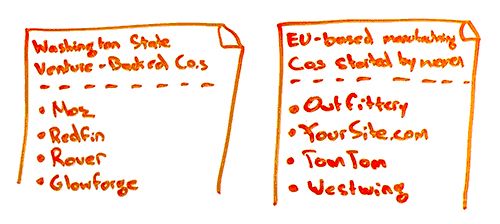 Washington State
Venture-Backed Co.s
• Moz
• Redfin
• Rover
• Glowforge
EU-based manufacturing
Co.s started by women
• Outfittery
• YourSite.com
• TomTom
• Westwing